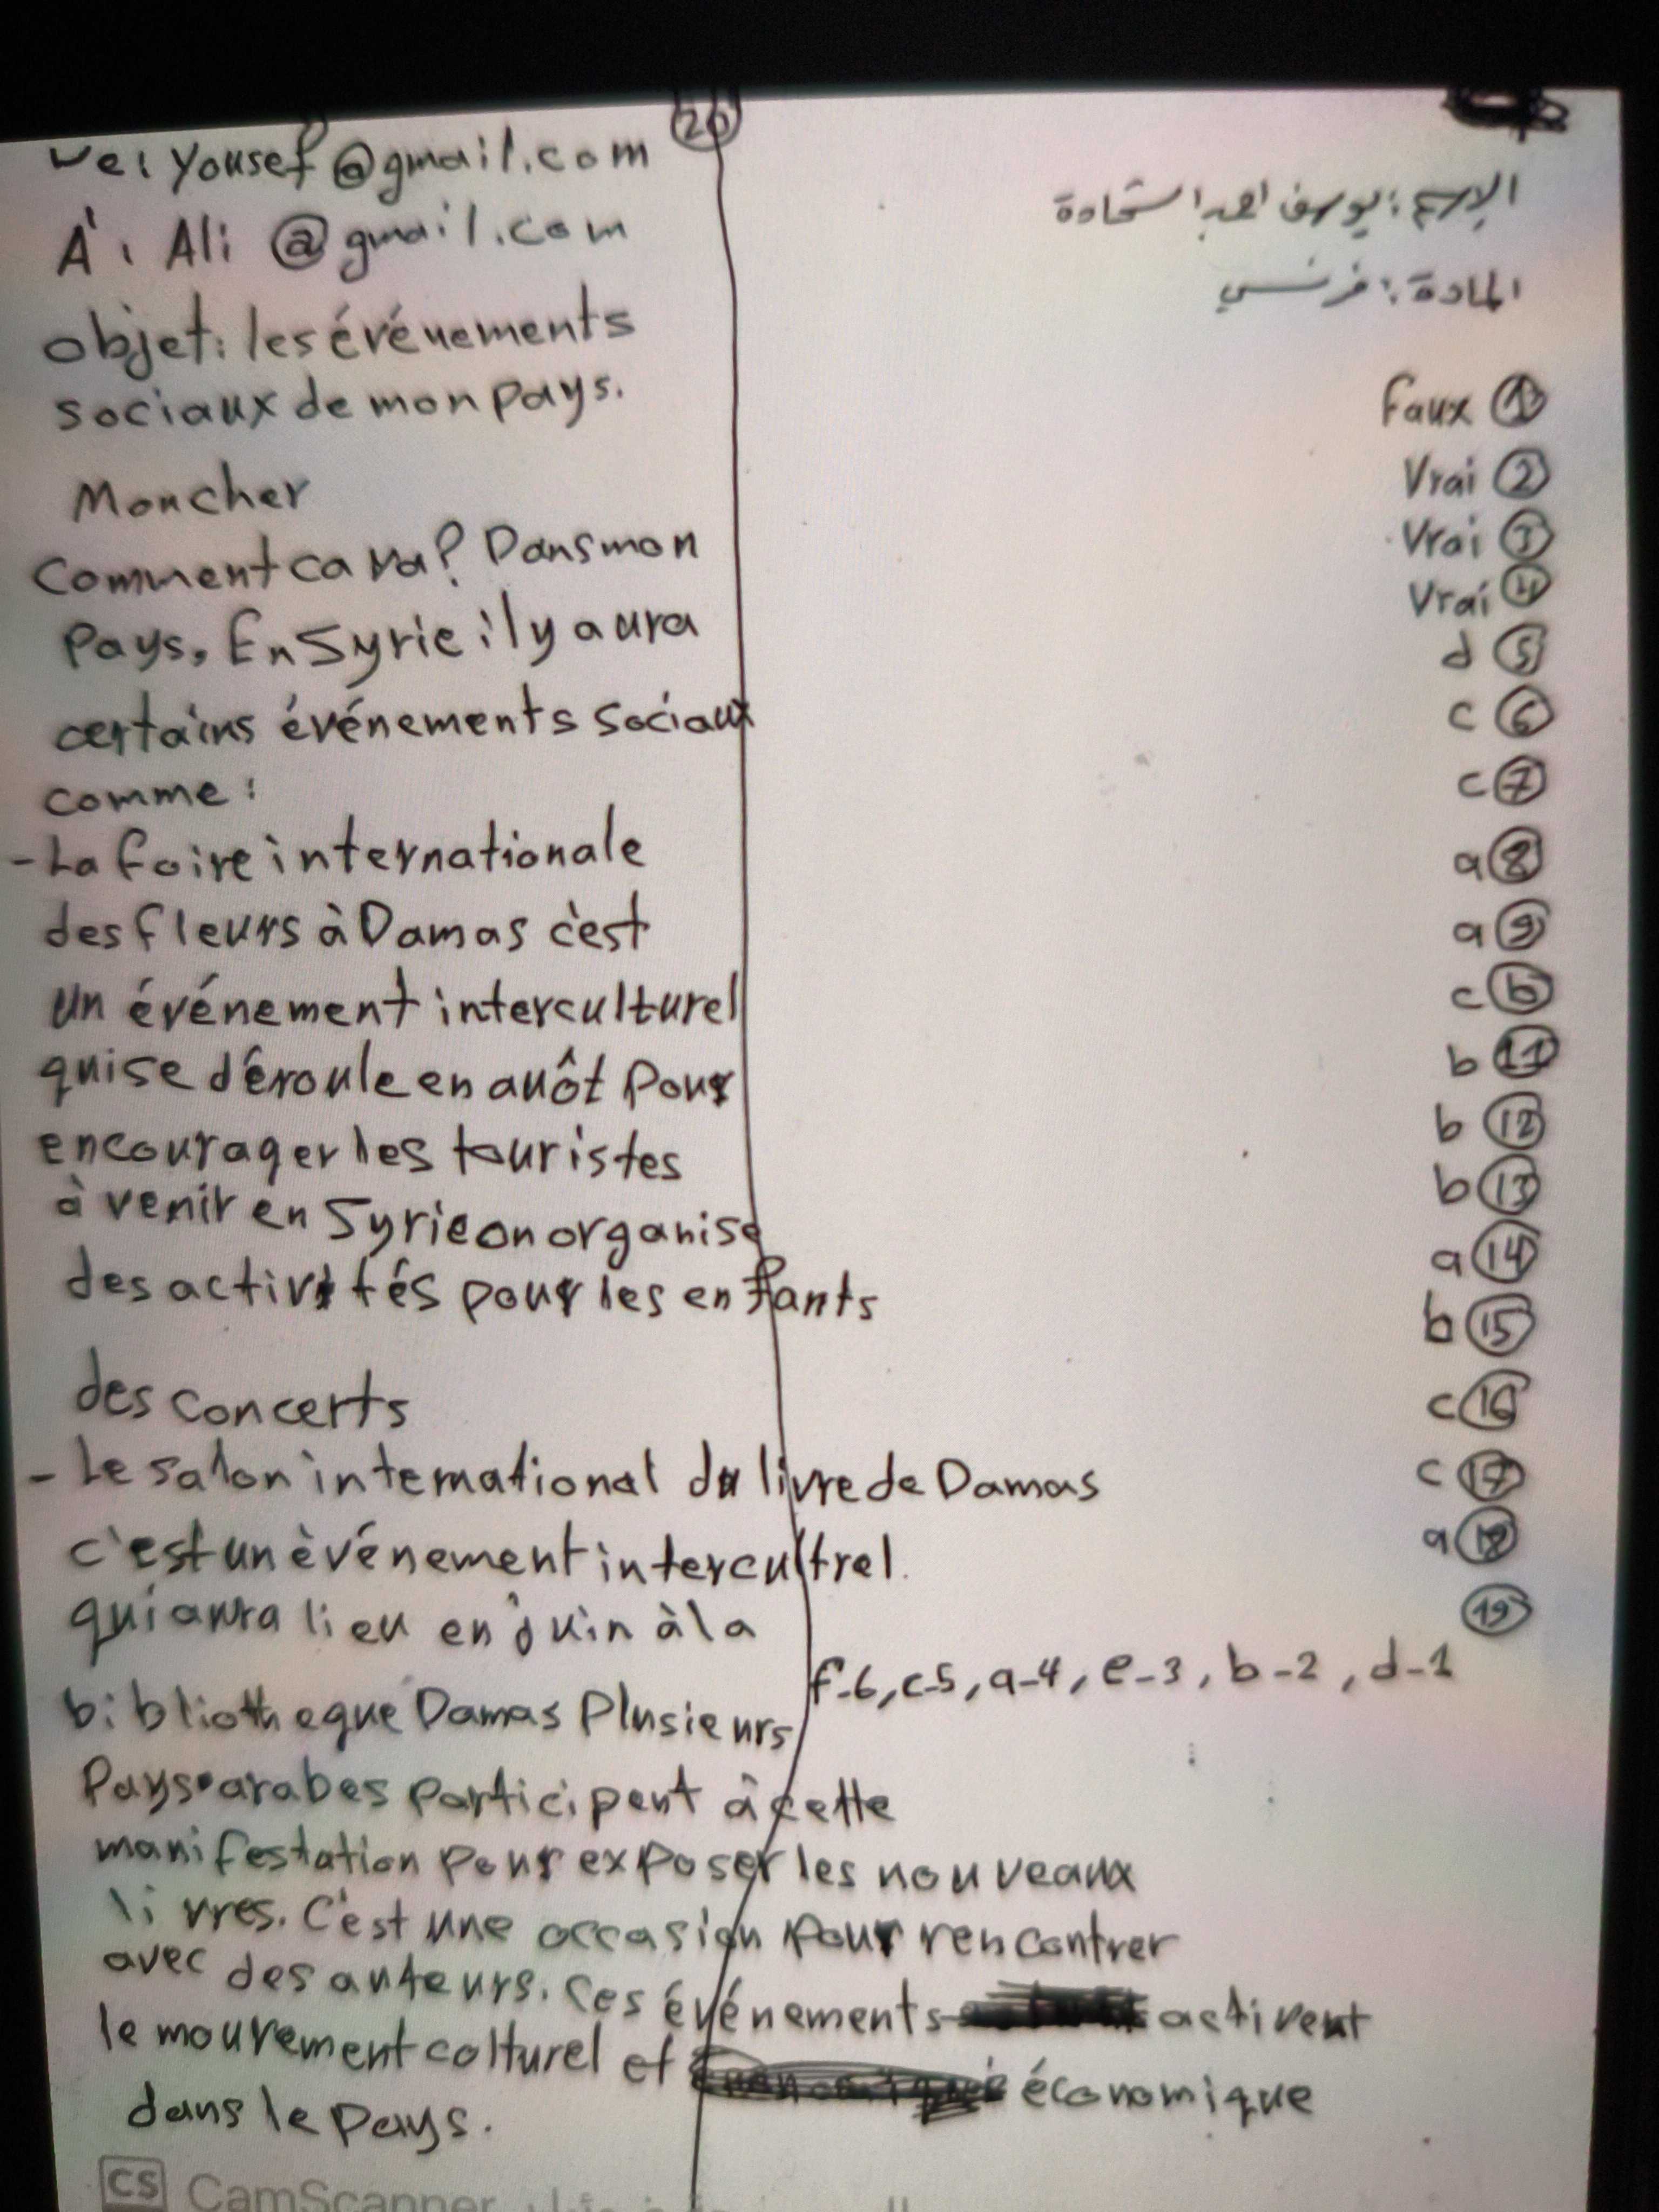 الإسم: يوسف احمد استحادة
المادة: فرنسي
Faux ①
Vrai ②
Vrai ③
Vrai ④
d ⑤
c ⑥
c ⑦
a ⑧
a ⑨
c ⑩
b ⑪
b ⑫
b ⑬
a ⑭
b ⑮
c ⑯
c ⑰
a ⑱
⑲
f-6, c-5, a-4, e-3, b-2, d-1
⑳
Yousef@gmail.com
À: Ali @gmail.com
objet: les événements
sociaux de mon pays.
Mon cher
Comment ca va? Dans mon
Pays, En Syrie il y aura
certains événements sociaux
comme:
- La foire internationale
des fleurs à Damas c'est
un événement interculturel
qui se déroule en auôt pour
encourager les touristes
à venir en Syrie on organise
des activités pour les enfants
des concerts
- Le salon international du livre de Damas
c'est un èvénement intercultrel.
qui aura lieu en juin à la
bibliotheque Damas Plusieurs
Pays arabes participent à cette
manifestation pour exposer les nouveaux
livres. C'est une occasion pour rencontrer
avec des auteurs. Ces événements activent
le mouvement colturel et économique
dans le pays.
CS CamScanner